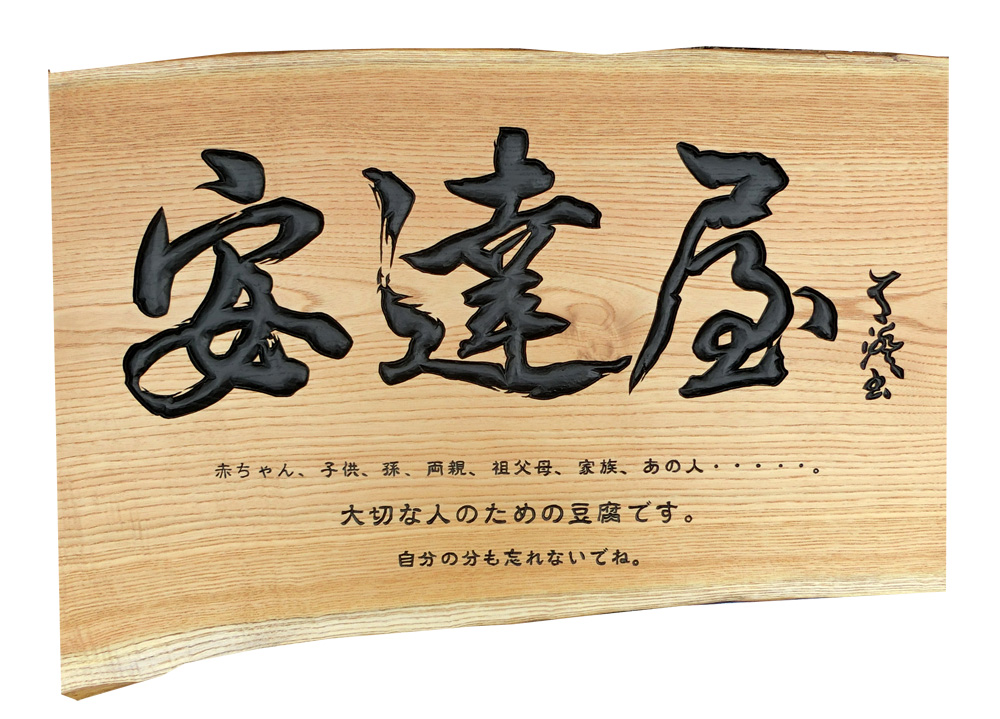 安達屋
赤ちゃん、子供、孫、両親、祖父母、家族、あの人・・・・・・。
大切な人のための豆腐です。
自分の分も忘れないでね。